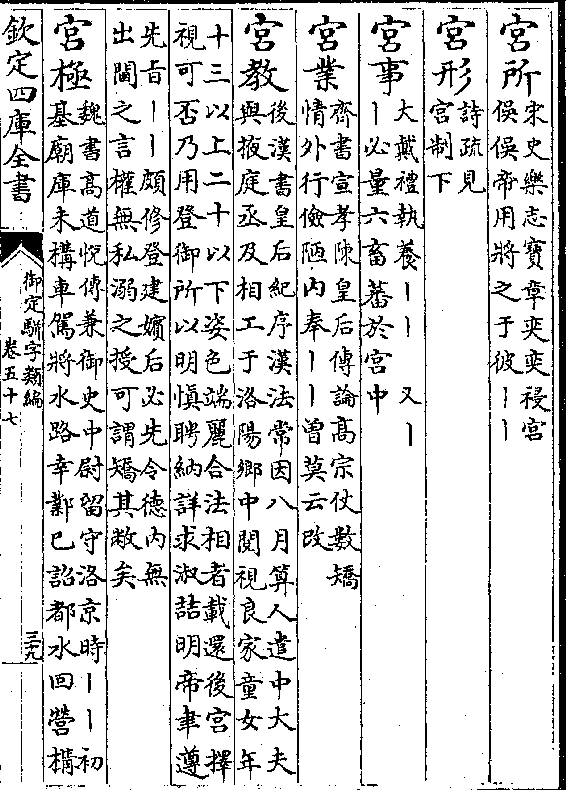 宮所 宋史樂志寶章奕奕祲宮
俁俁帝用將之于彼丨丨
宮形 詩疏見
宮制下
宮事 大戴禮執養丨丨 又丨
丨必量六畜蕃於宮中
宮業 齊書宣孝陳皇后傳論髙宗仗數矯
情外行儉陋内奉丨丨曽莫云改
宮教 後漢書皇后紀序漢法常因八月算人遣中大夫
與掖庭丞及相工于洛陽鄉中閱視良家童女年
十三以上二十以下姿色端麗合法相者載還後宮擇
視可否乃用登御所以明慎聘納詳求淑詰明帝聿遵
先旨丨丨頗修登建嬪后必先令德内無
出閫之言權無私溺之授可謂矯其敝矣
宮極 魏書髙道悦傳兼御史中尉留守洛京時丨丨初
基廟庫未構車駕將水路幸鄴已詔都水回營構
欽定四庫全書
御定駢字類編
卷五十七
三九